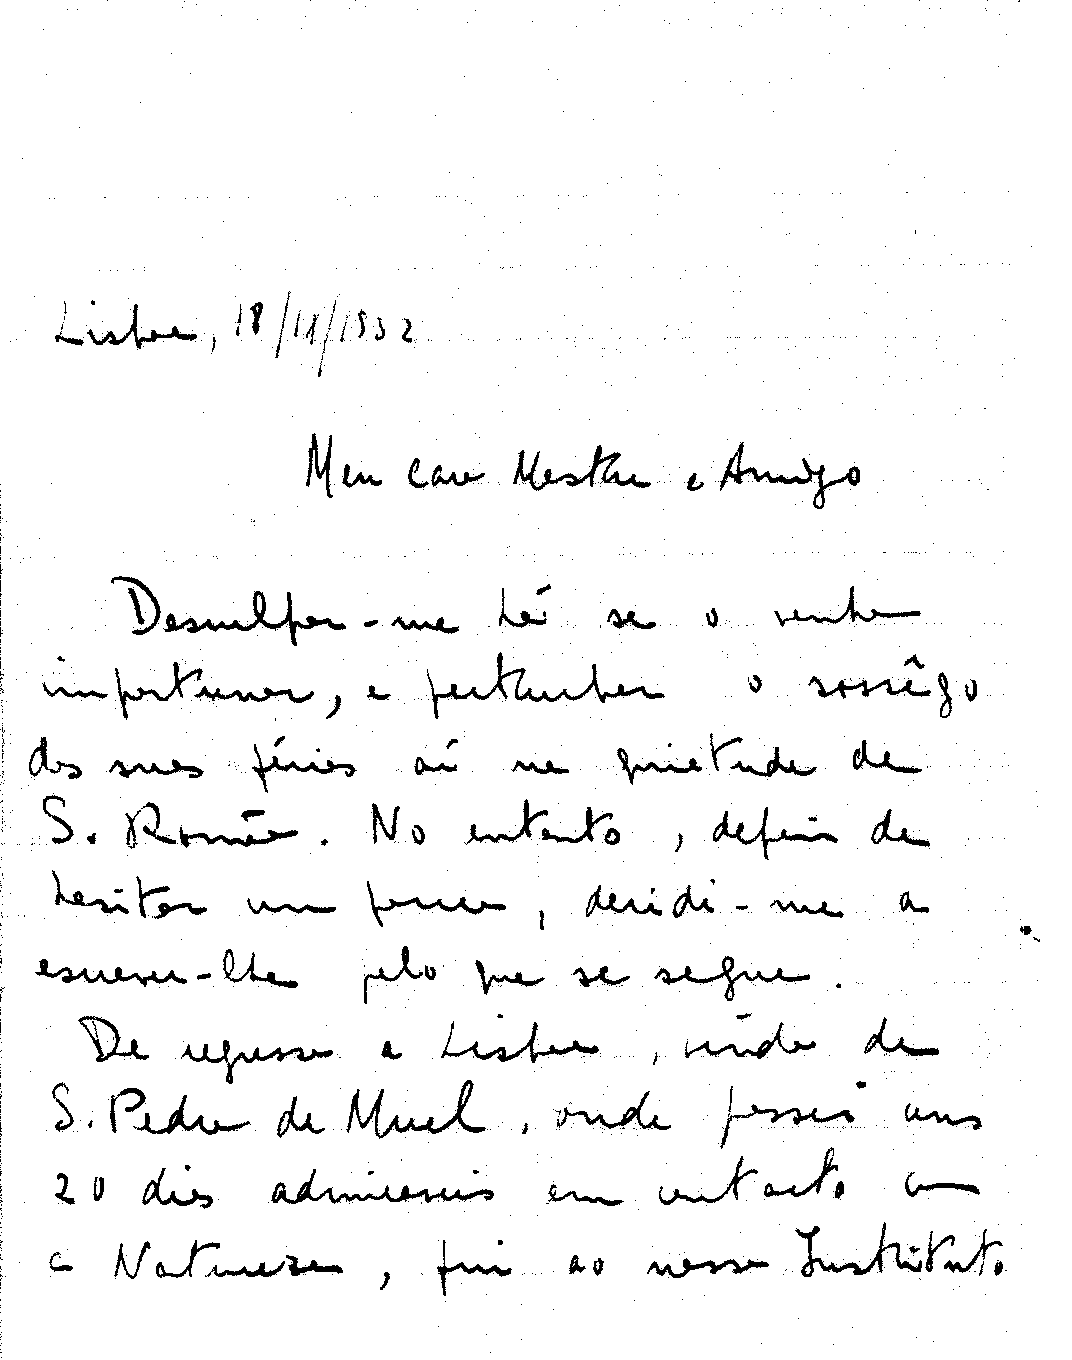 Lisboa, 18/11/1932
Meu caro Mestre e Amigo
Desculpar-me-há se o venho
importunar, e perturbar o sossêgo
das suas férias aí na quietude de
S. Romão. No entanto, depois de
hesitar um pouco, decidi-me a
escrever-lhe pelo que se segue.
De regresso a Lisboa, vindo de
S. Pedro de Muel, onde passei uns
20 dias admiraveis em contacto com
a Natureza, fui ao nosso Instituto